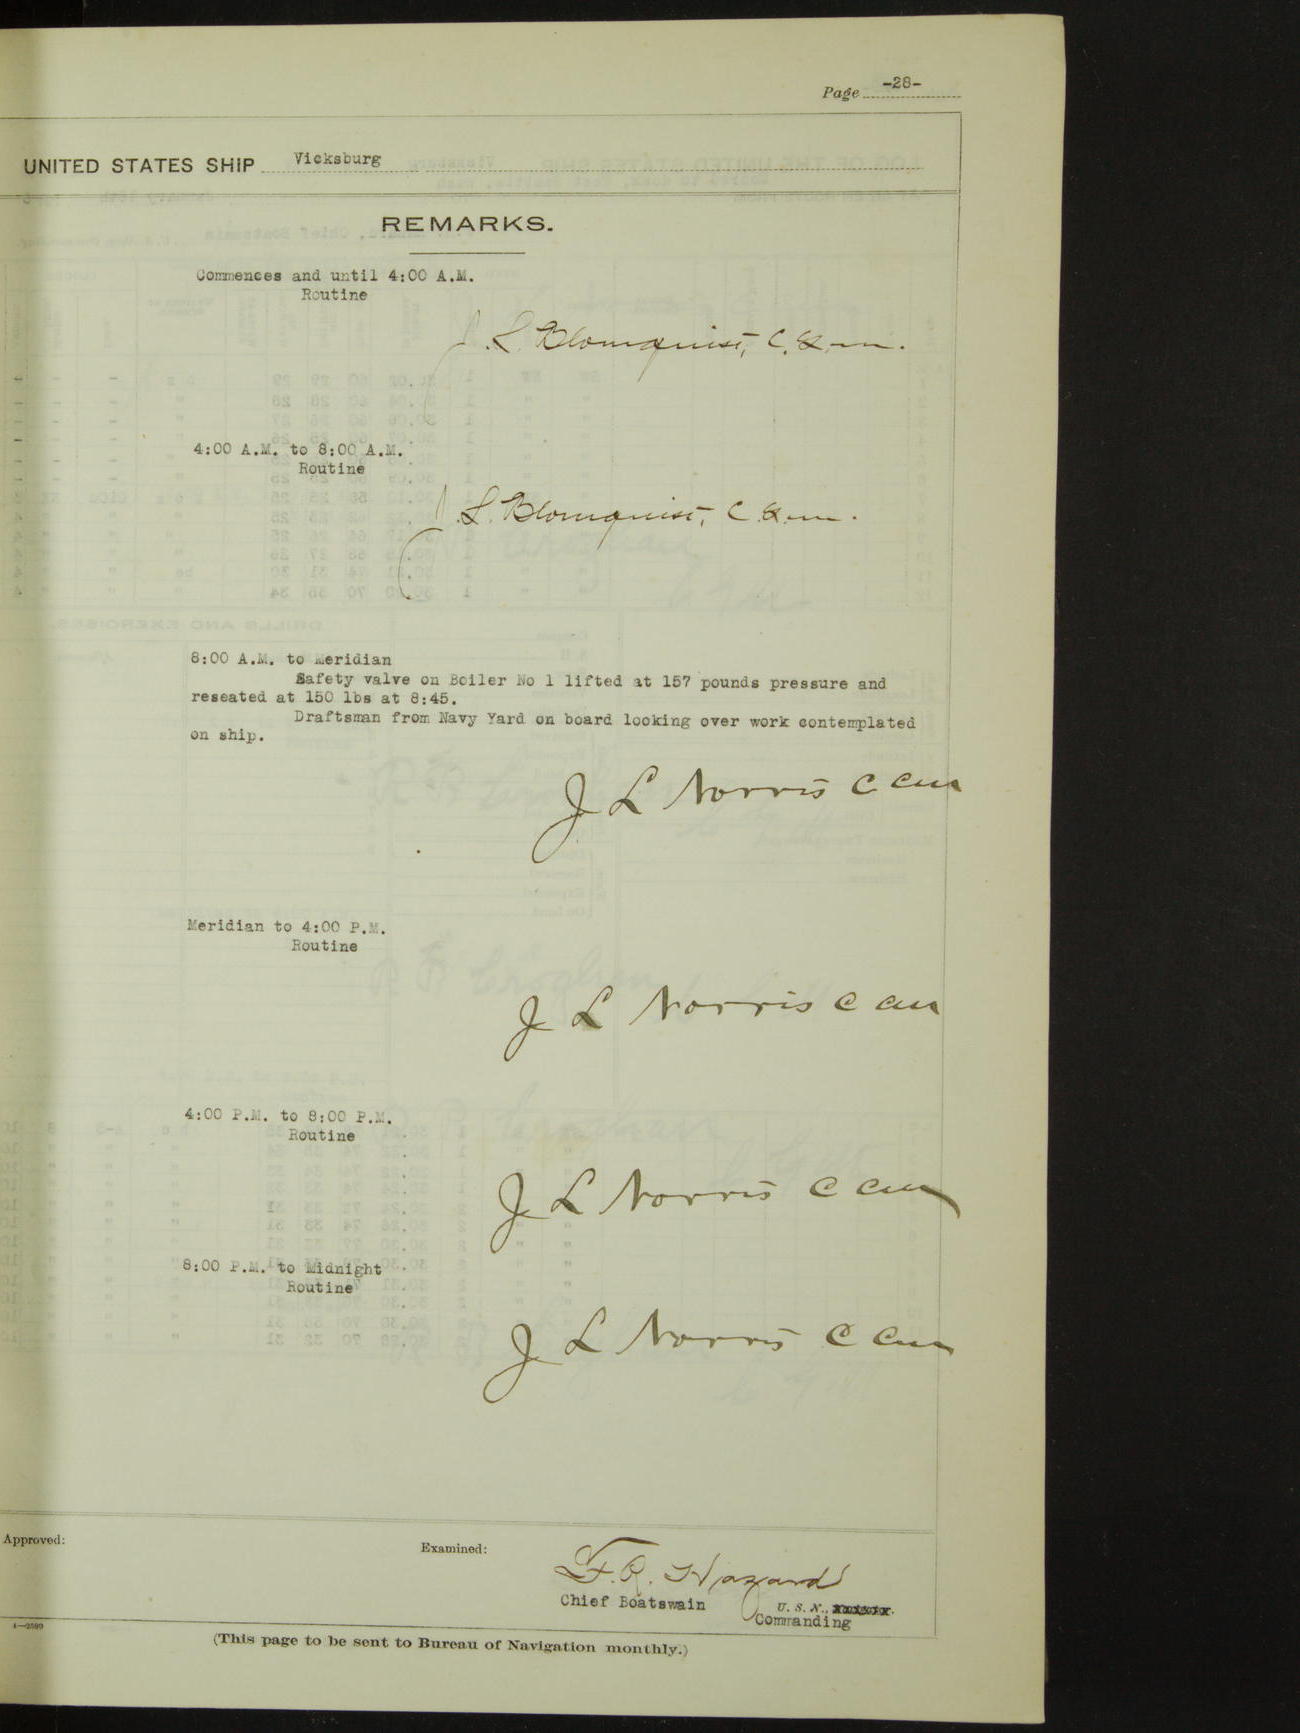 Page -28-
UNITED STATES SHIP Vicksburg
REMARKS.
Commences and until 4:00 A.M.
Routine
J. L. Blomquist, C.
4:00 A.M. to 8:00 A.M.
Routine
J. L. Blomquist, C.
8:00 A.M. to Meridian
Safety valve on Boiler No 1 lifted at 157 pounds pressure and
reseated at 150 lbs at 8:45.
Draftsman from Navy Yard on board looking over work contemplated
on ship.
J L Norris C
Meridian to 4:00 P.M.
Routine
J L Norris C
4:00 P.M. to 8:00 P.M.
Routine
J L Norris C
8:00 P.M. to Midnight
Routine
J L Norris C
Approved:
Examined:
F. R. Hazard
Chief Boatswain U. S. N.,
Commanding
(This page to be sent to Bureau of Navigation monthly.)